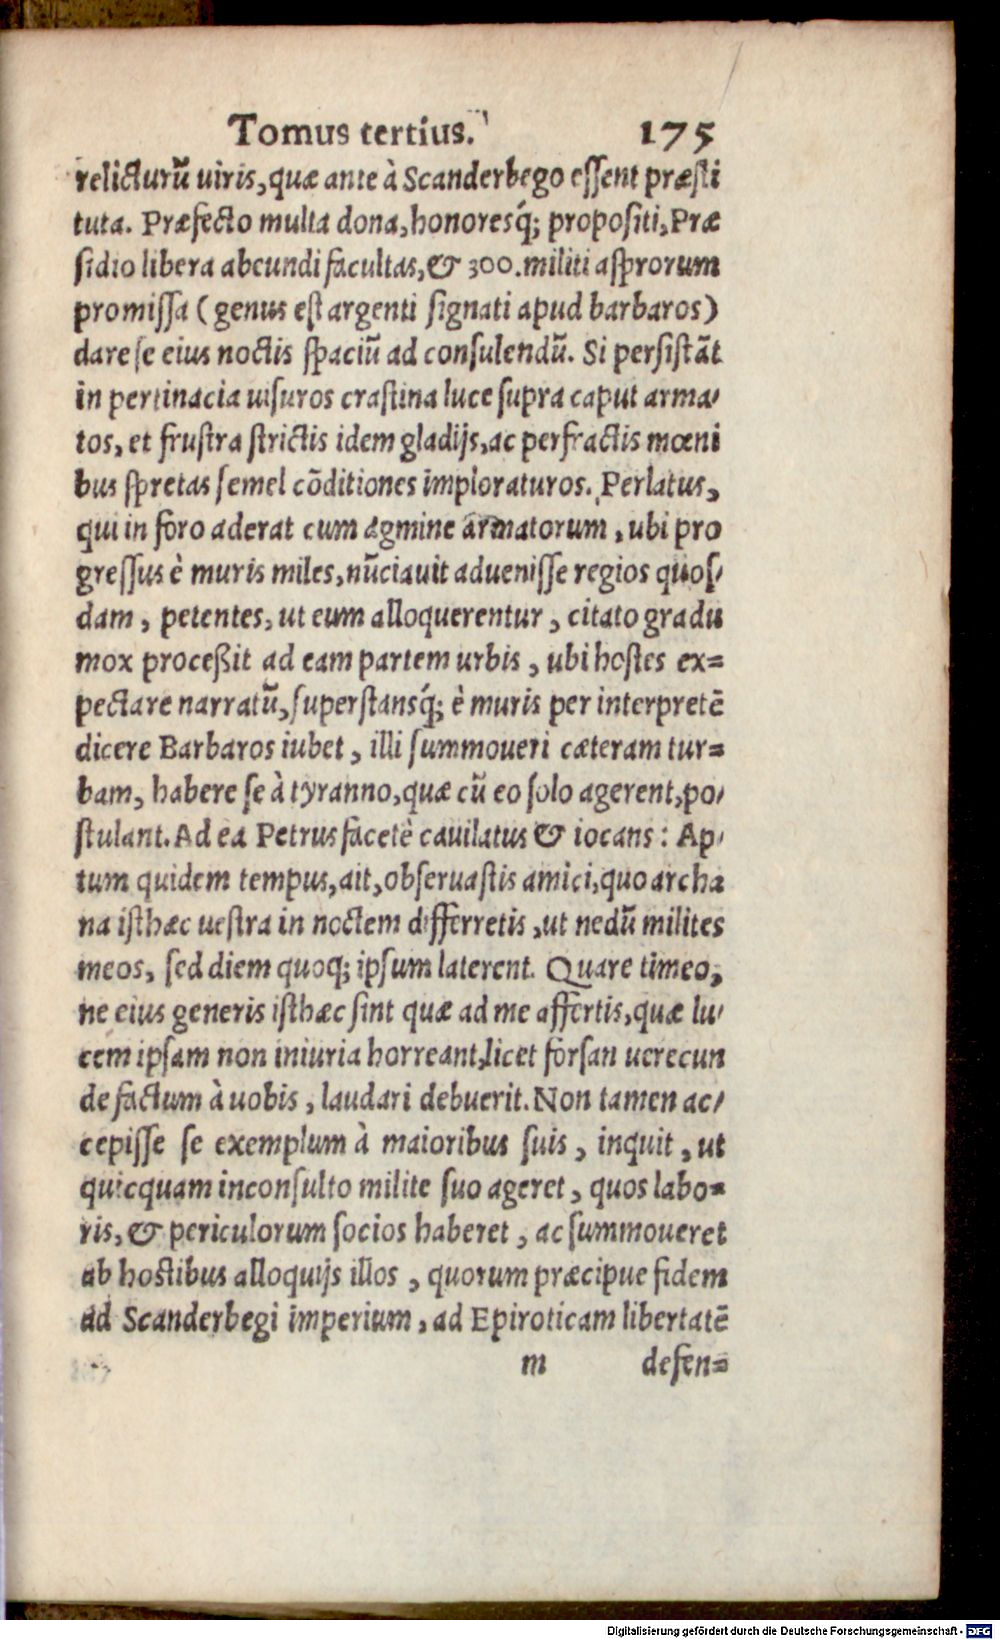 Tomus tertius. 175
relicturũ uiris, quæ ante à Scanderbego essent præsti
tuta. Præfecto multa dona, honoresq́; propositi, Præ
sidio libera abeundi facultas, & 300. militi asprorum
promissa ( genus est argenti signati apud barbaros)
dare se eius noctis spaciũ ad consulendũ. Si persistãt
in pertinacia uisuros crastina luce supra caput arma-
tos, et frustra strictis idem gladijs, ac perfractis mœni
bus spretas semel cõditiones imploraturos. Perlatus,
qui in foro aderat cum agmine armatorum, ubi pro
gressus è muris miles, nũciauit aduenisse regios quos-
dam, petentes, ut eum alloquerentur, citato gradu
mox proceßit ad eam partem urbis, ubi hostes ex=
pectare narratũ, superstansq́; è muris per interpretẽ
dicere Barbaros iubet, illi summoueri cæteram tur=
bam, habere se à tyranno, quæ cũ eo solo agerent, po-
stulant. Ad ea Petrus facetè cauilatus & iocans: Ap-
tum quidem tempus, ait, obseruastis amici, quo archa
na isthæc uestra in noctem differretis, ut nedũ milites
meos, sed diem quoq; ipsum laterent. Quare timeo,
ne eius generis isthæc sint quæ ad me affertis, quæ lu-
cem ipsam non iniuria horreant, licet forsan uerecun
de factum à uobis, laudari debuerit. Non tamen ac-
cepisse se exemplum à maioribus suis, inquit, ut
quicquam inconsulto milite suo ageret, quos labo=
ris, & periculorum socios haberet, ac summoueret
ab hostibus alloquijs illos, quorum præcipue fidem
ad Scanderbegi imperium, ad Epiroticam libertatẽ
m defen=
Digitalisierung gefördert durch die Deutsche Forschungsgemeinschaft - DFG